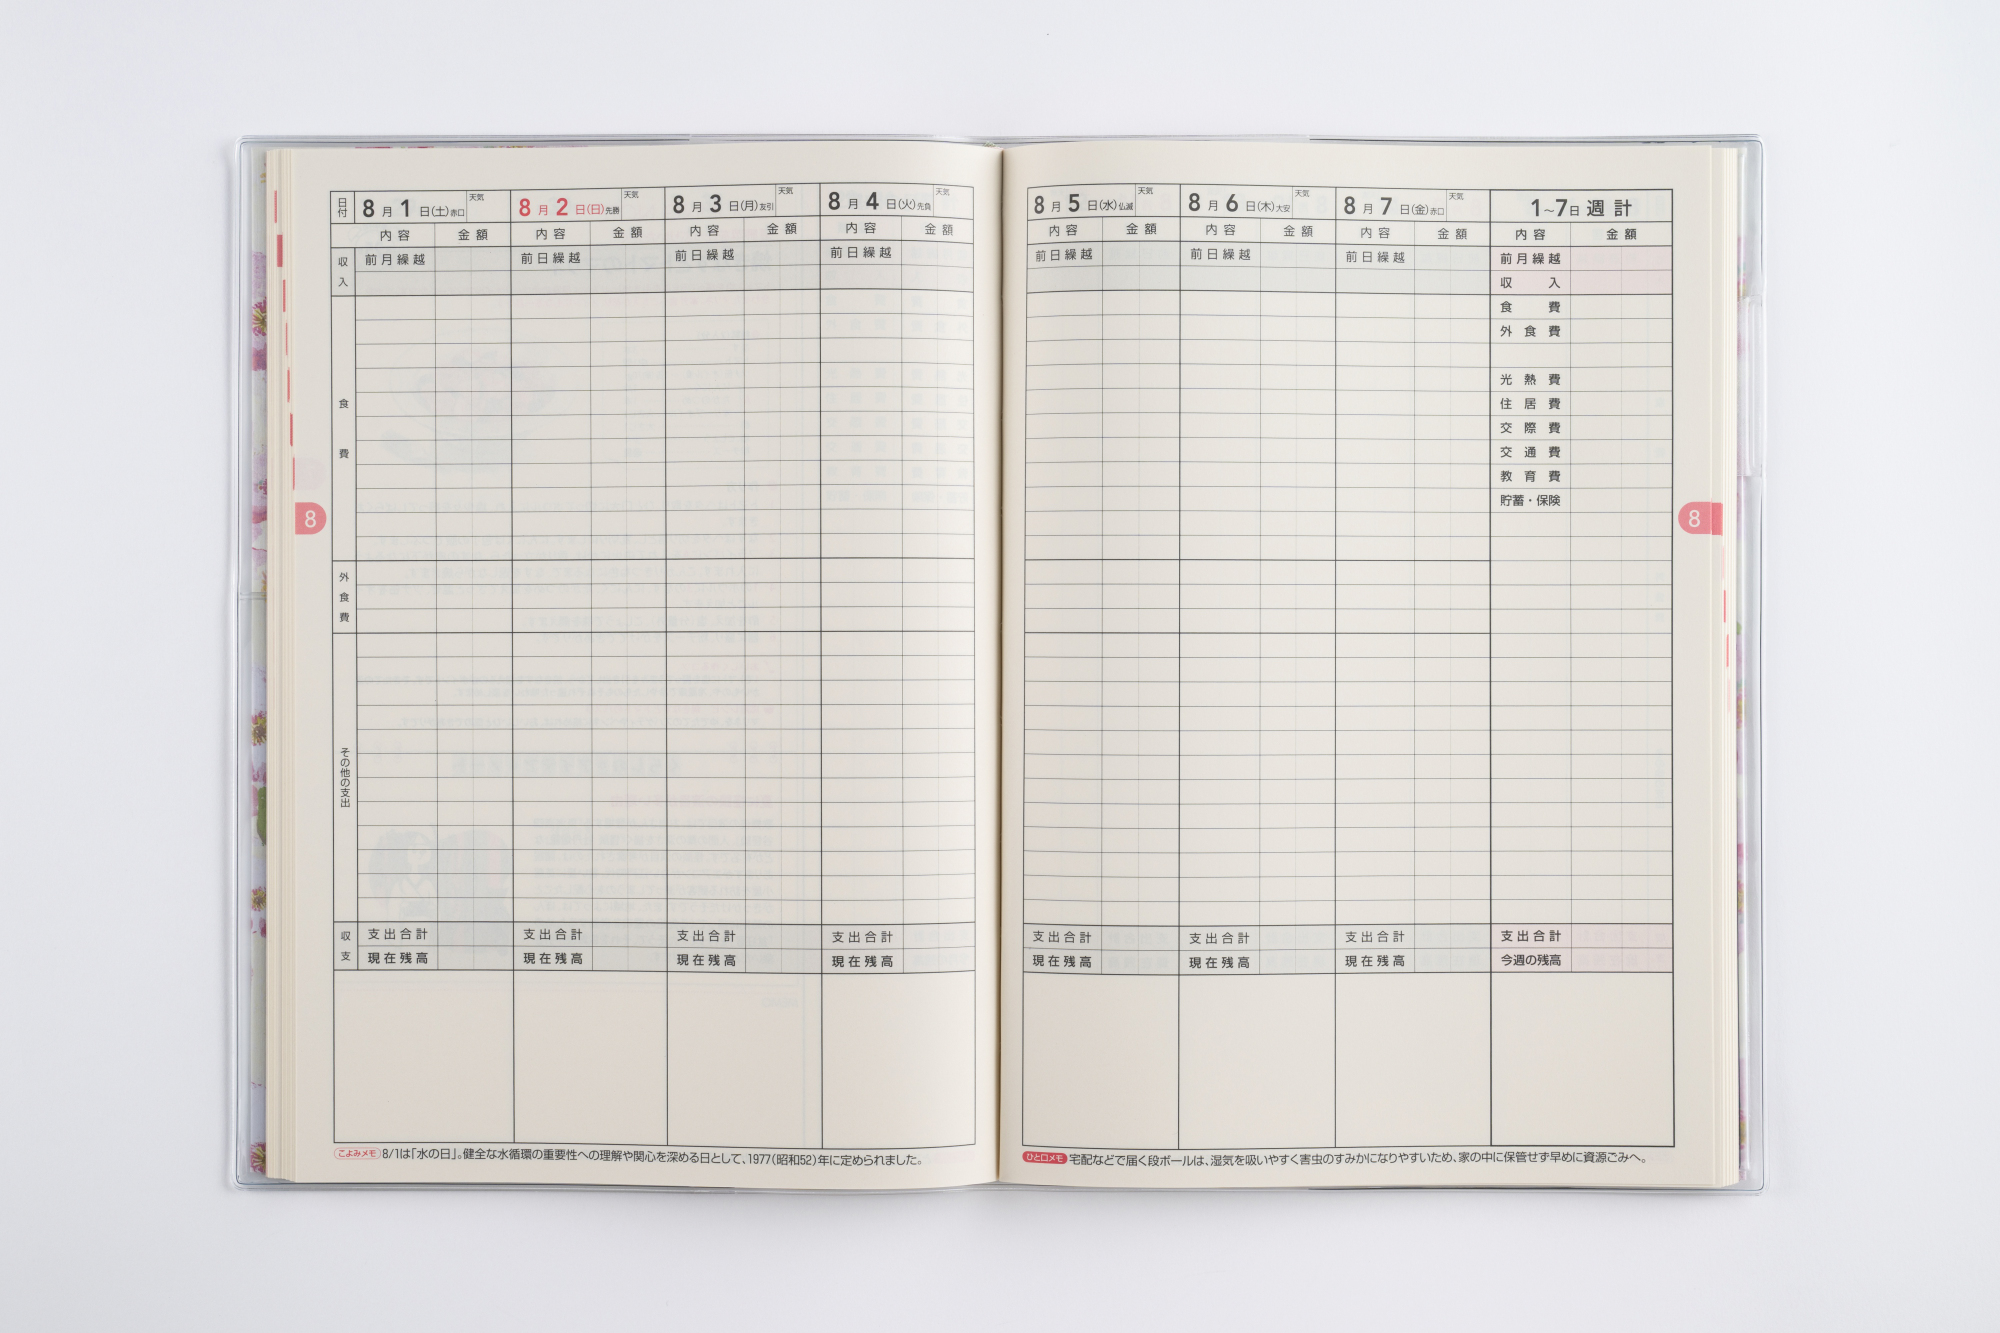 日付 8月1日(土)赤口 天気 8月2日(日)先勝 天気 8月3日(月)友引 天気 8月4日(火)先負 天気
内容 金額 内容 金額 内容 金額 内容 金額
収入 前月繰越 前日繰越 前日繰越 前日繰越
食費
外食費
その他の支出
収支 支出合計 支出合計 支出合計 支出合計
現在残高 現在残高 現在残高 現在残高
こよみメモ 8/1は「水の日」。健全な水循環の重要性への理解や関心を深める日として、1977(昭和52)年に定められました。
8
8月5日(水)仏滅 天気 8月6日(木)大安 天気 8月7日(金)赤口 天気 1~7日 週計
内容 金額 内容 金額 内容 金額 内容 金額
前日繰越 前日繰越 前日繰越 前月繰越
収入
食費
外食費
光熱費
住居費
交際費
交通費
教育費
貯蓄・保険
支出合計 支出合計 支出合計 支出合計
現在残高 現在残高 現在残高 今週の残高
ひと口メモ 宅配などで届く段ボールは、湿気を吸いやすく害虫のすみかになりやすいため、家の中に保管せず早めに資源ごみへ。
8